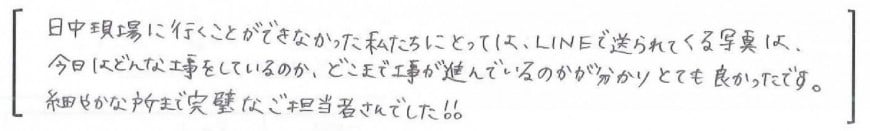 日中現場に行くことができなかった私たちにとっては、LINEで送られてくる写真は、
今日はどんな工事をしているのか、どこまで工事が進んでいるのかが分かりとても良かったです。
細やかな所まで完璧なご担当者さんでした!!